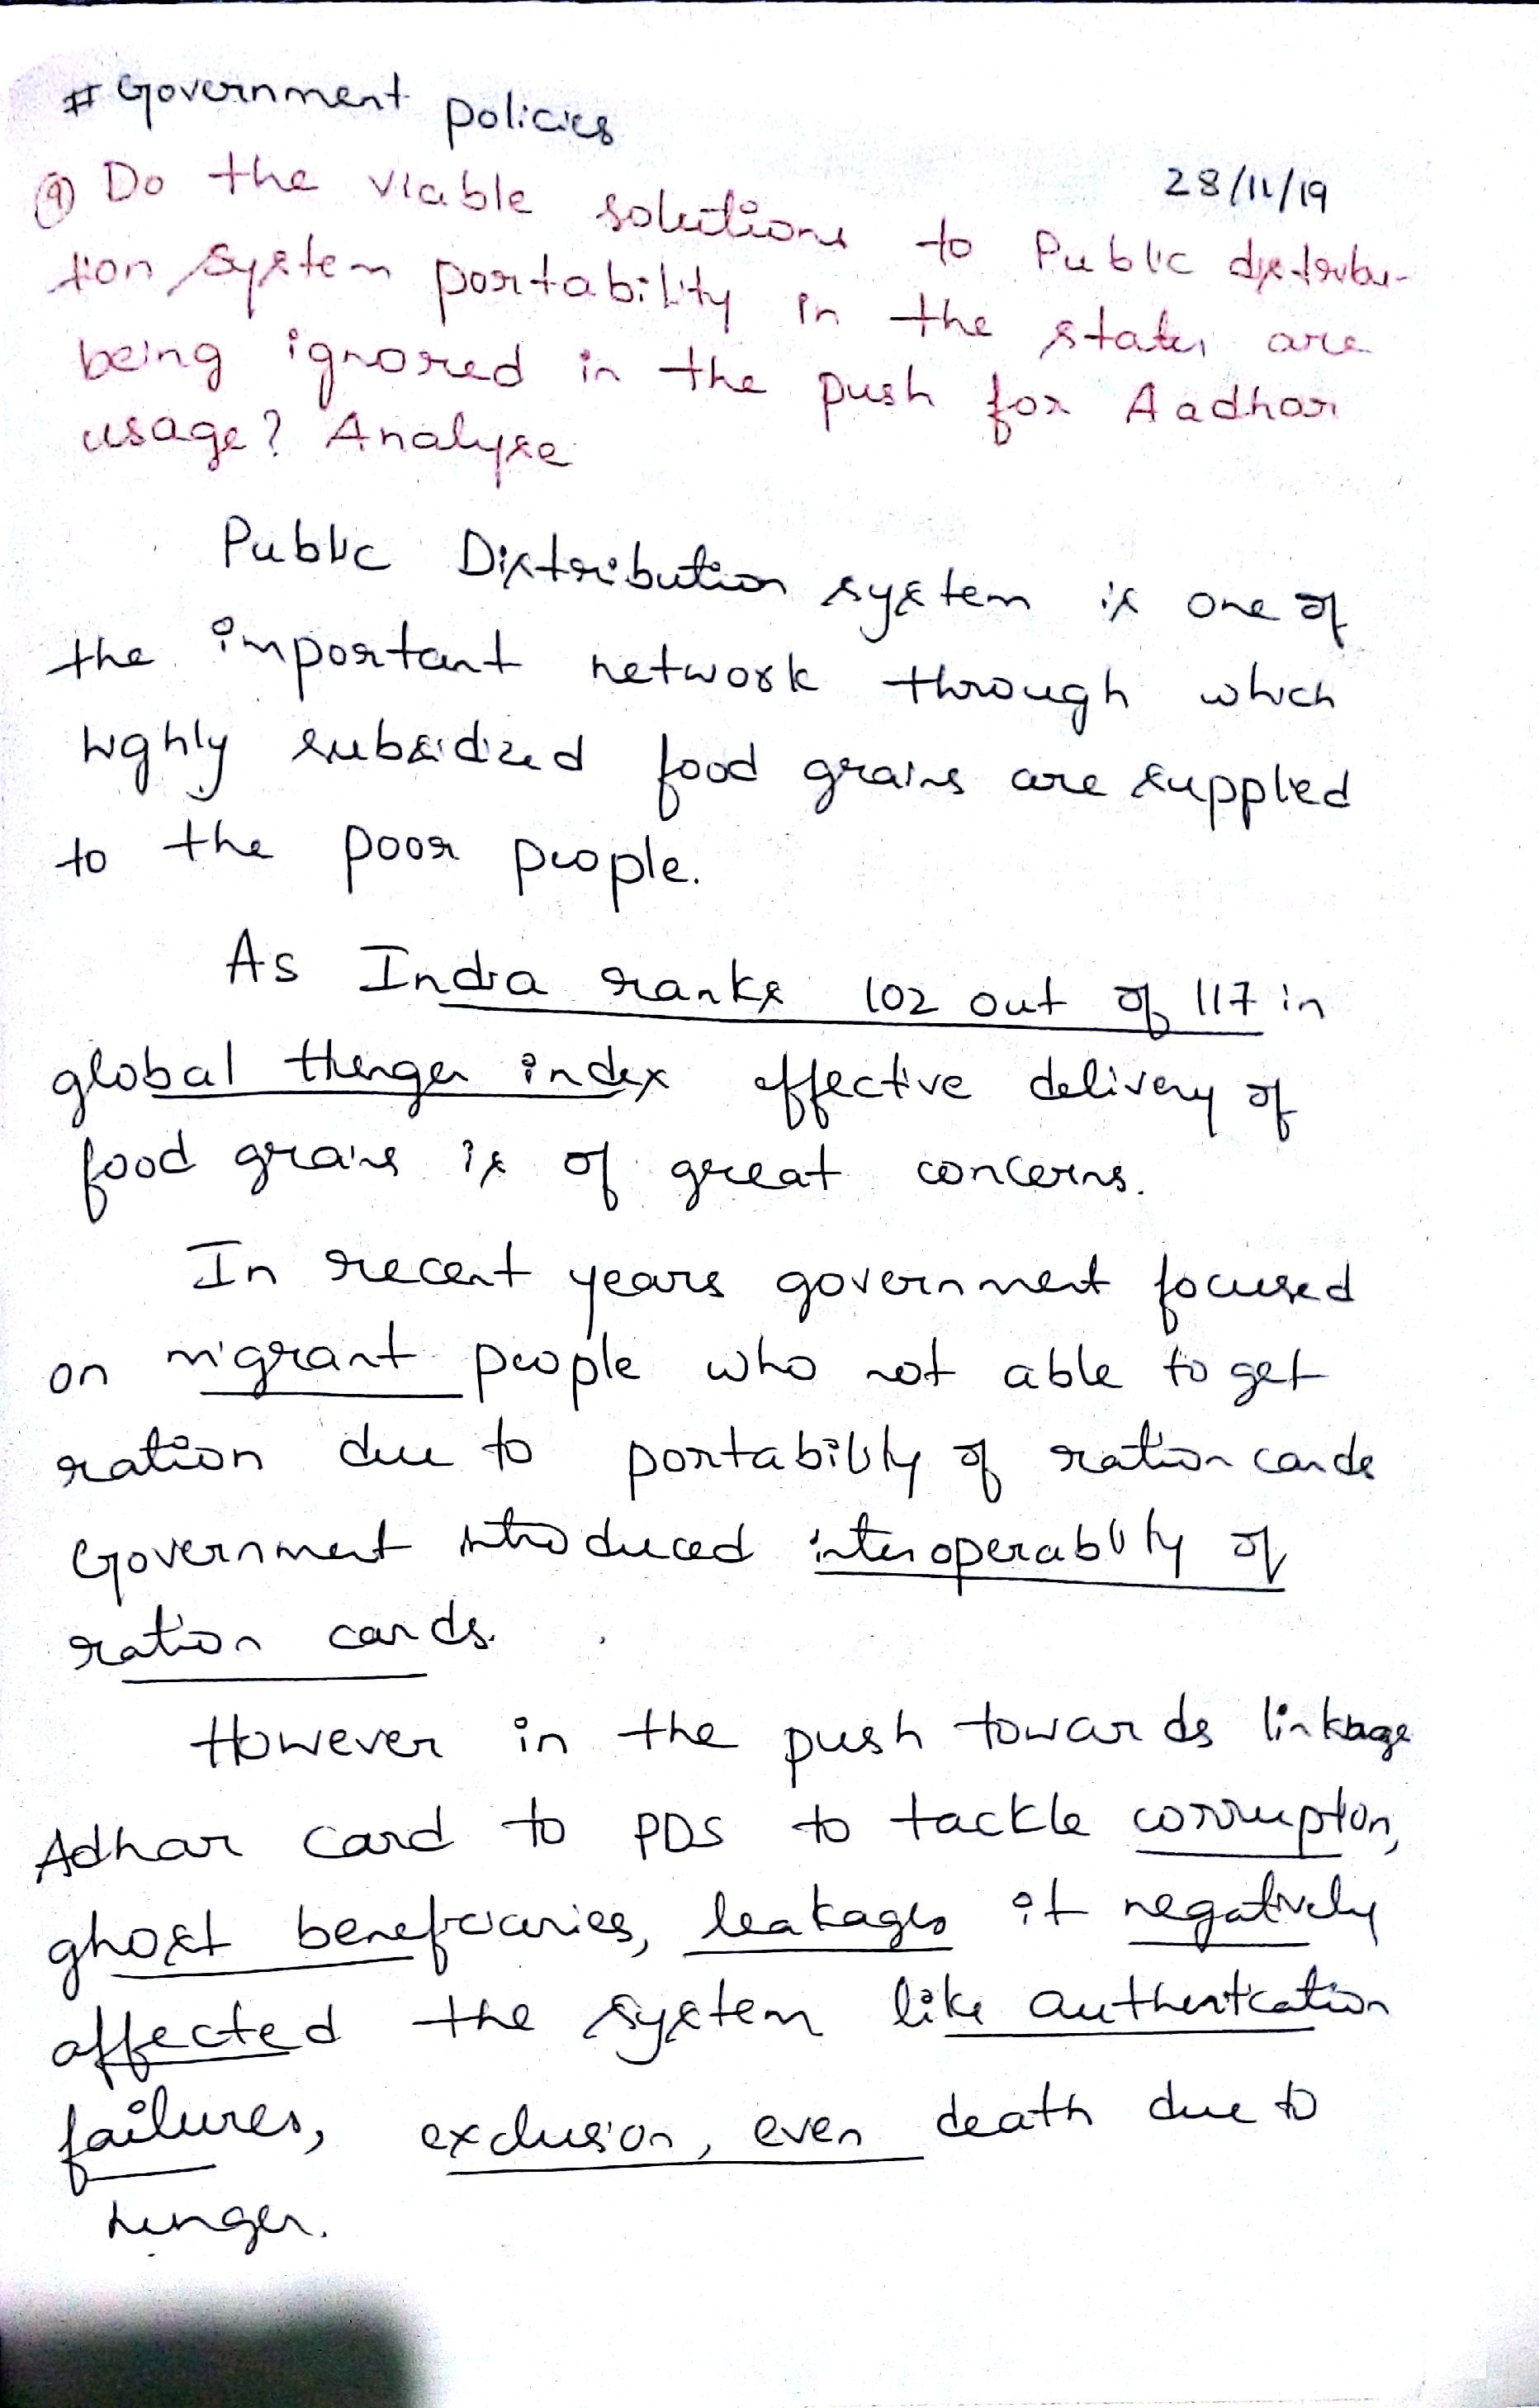 # Government policies
28/11/19
(9) Do the viable solutions to Public distribu-
tion system portability in the states are
being ignored in the push for Aadhar
usage? Analyse
Public Distribution system is one of
the important network through which
highly subsidized food grains are supplied
to the poor people.
As India ranks 102 out of 117 in
global Hunger index effective delivery of
food grains is of great concerns.
In recent years government focused
on migrant people who not able to get
ration due to portability of ration cards
Government introduced interoperability of
ration cards.
However in the push towards linkage
Adhar card to PDS to tackle corruption,
ghost beneficiaries, leakages it negatively
affected the system like authentication
failures, exclusion, even death due to
hunger.